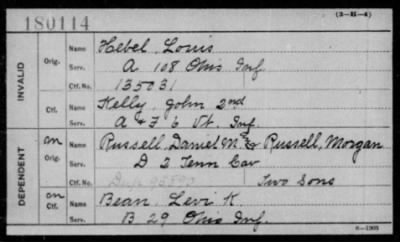 180114
(3-H-4)
INVALID
Orig.
Name Hebel, Louis
Serv. A 108 Ohio Inf.
Ctf. No. 135031
Ctf.
Name Kelly, John 2nd
Serv. A & F 6 Vt. Inf.
DEPENDENT
on
Orig.
Name Russell, Daniel M. & Russell, Morgan
Serv. D 3 Tenn Cav
Ctf. No. Two Sons
on
Ctf.
Name Bean, Levi K.
Serv. B 29 Ohio Inf.
6-1903